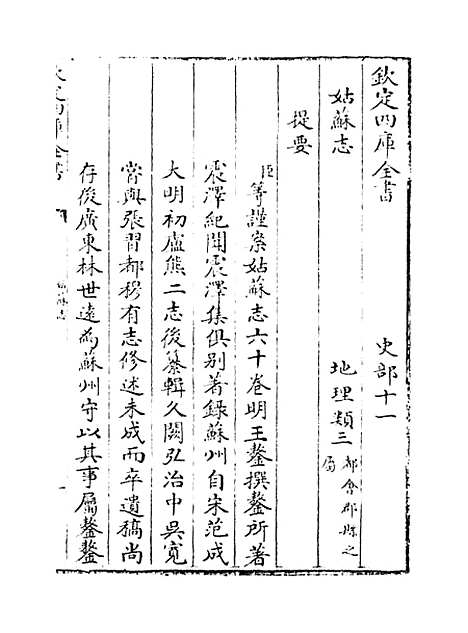 欽定四庫全書　　　史部十一
姑蘇志　　　　　　地理類三都會郡縣之屬
提要
臣等謹案姑蘇志六十卷明王鏊撰鏊所著
震澤紀聞震澤集俱别著錄蘇州自宋范成
大明初盧熊二志後纂輯久闕弘治中吳寛
嘗與張習都穆有志修述未成而卒遺稿尚
存後廣東林世遠為蘇州守以其事屬鏊鏊